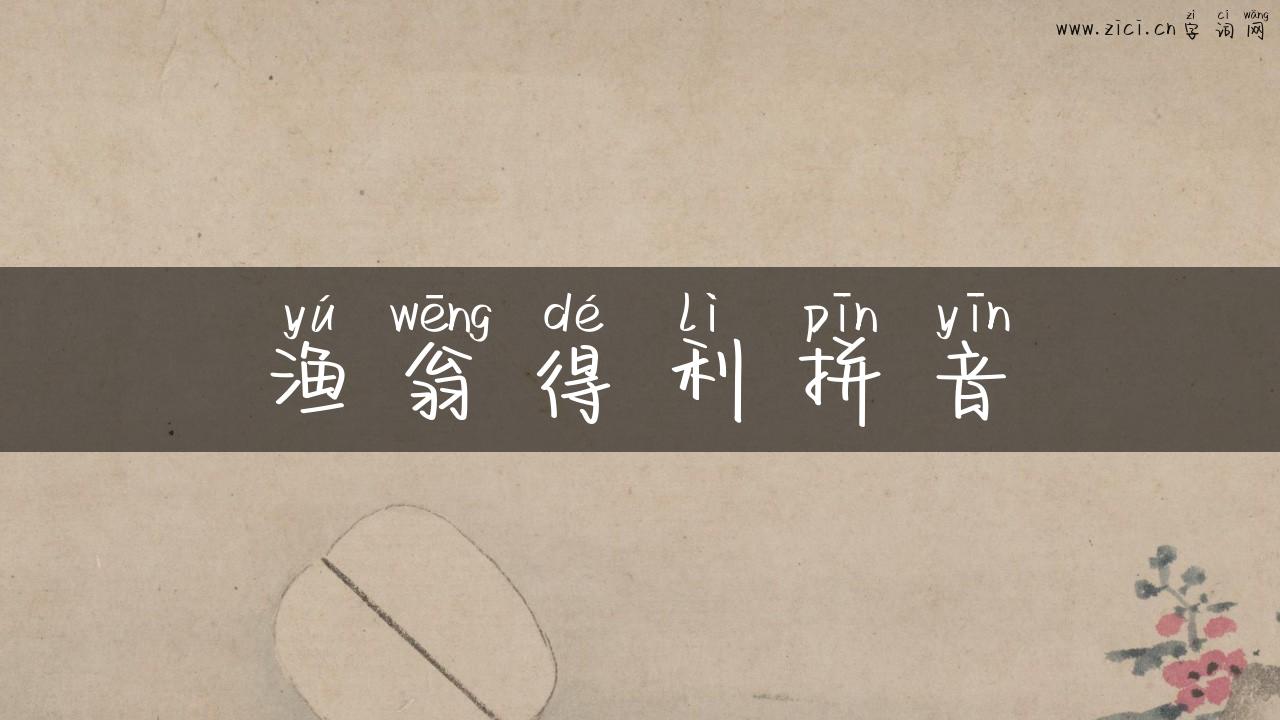 zì cí wǎng
www.zici.cn 字词网
yú wēng dé lì pīn yīn
渔翁得利拼音